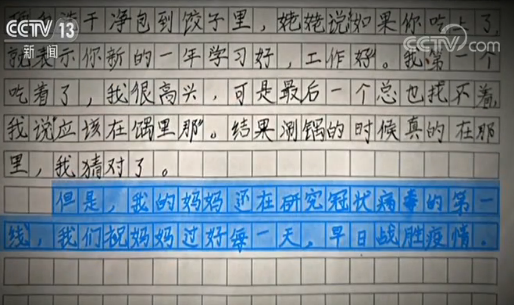 CCTV 13
新闻
CCTV.com
洗干净包到饺子里，姥姥说如果你吃上了，
就表示你新的一年学习好，工作好。我第一个
吃着了，我很高兴，可是最后一个总也找不着，
我说"应该在锅里那"。结果涮锅的时候真的在那
里，我猜对了。
但是，我的妈妈还在研究冠状病毒的第一
线，我们祝妈妈过好每一天，早日战胜疫情。